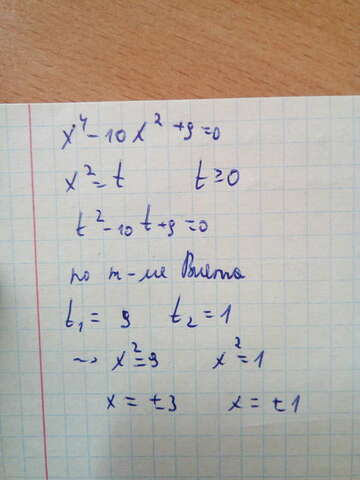 x⁴ - 10x² + 9 = 0
x² = t t ≥ 0
t² - 10t + 9 = 0
по т-ме Виета
t₁ = 9 t₂ = 1
→ x² = 9 x² = 1
x = ±3 x = ±1